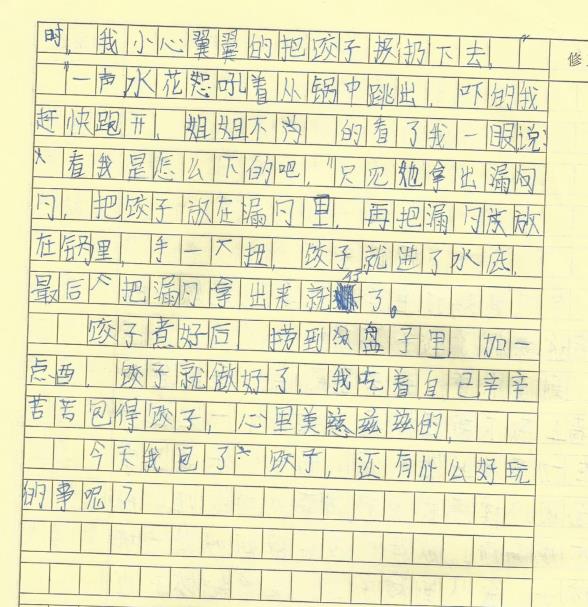 时，我小心翼翼的把饺子扔下去，"
"一声水花怒吼着从锅中跳出，吓的我
赶快跑开，姐姐不为 的看了我一眼说：
"看我是怎么下的吧，"只见她拿出漏勺
勺，把饺子放在漏勺里，再把漏勺放
在锅里，手一 扭，饺子就进了水底，
最后 把漏勺拿出来就行了。
饺子煮好后，捞到 盘子里，加一
点西，饺子就做好了，我吃着自己辛辛
苦苦包得饺子，心里美滋滋的，
今天我包了 饺子，还有什么好玩
的事呢？
修